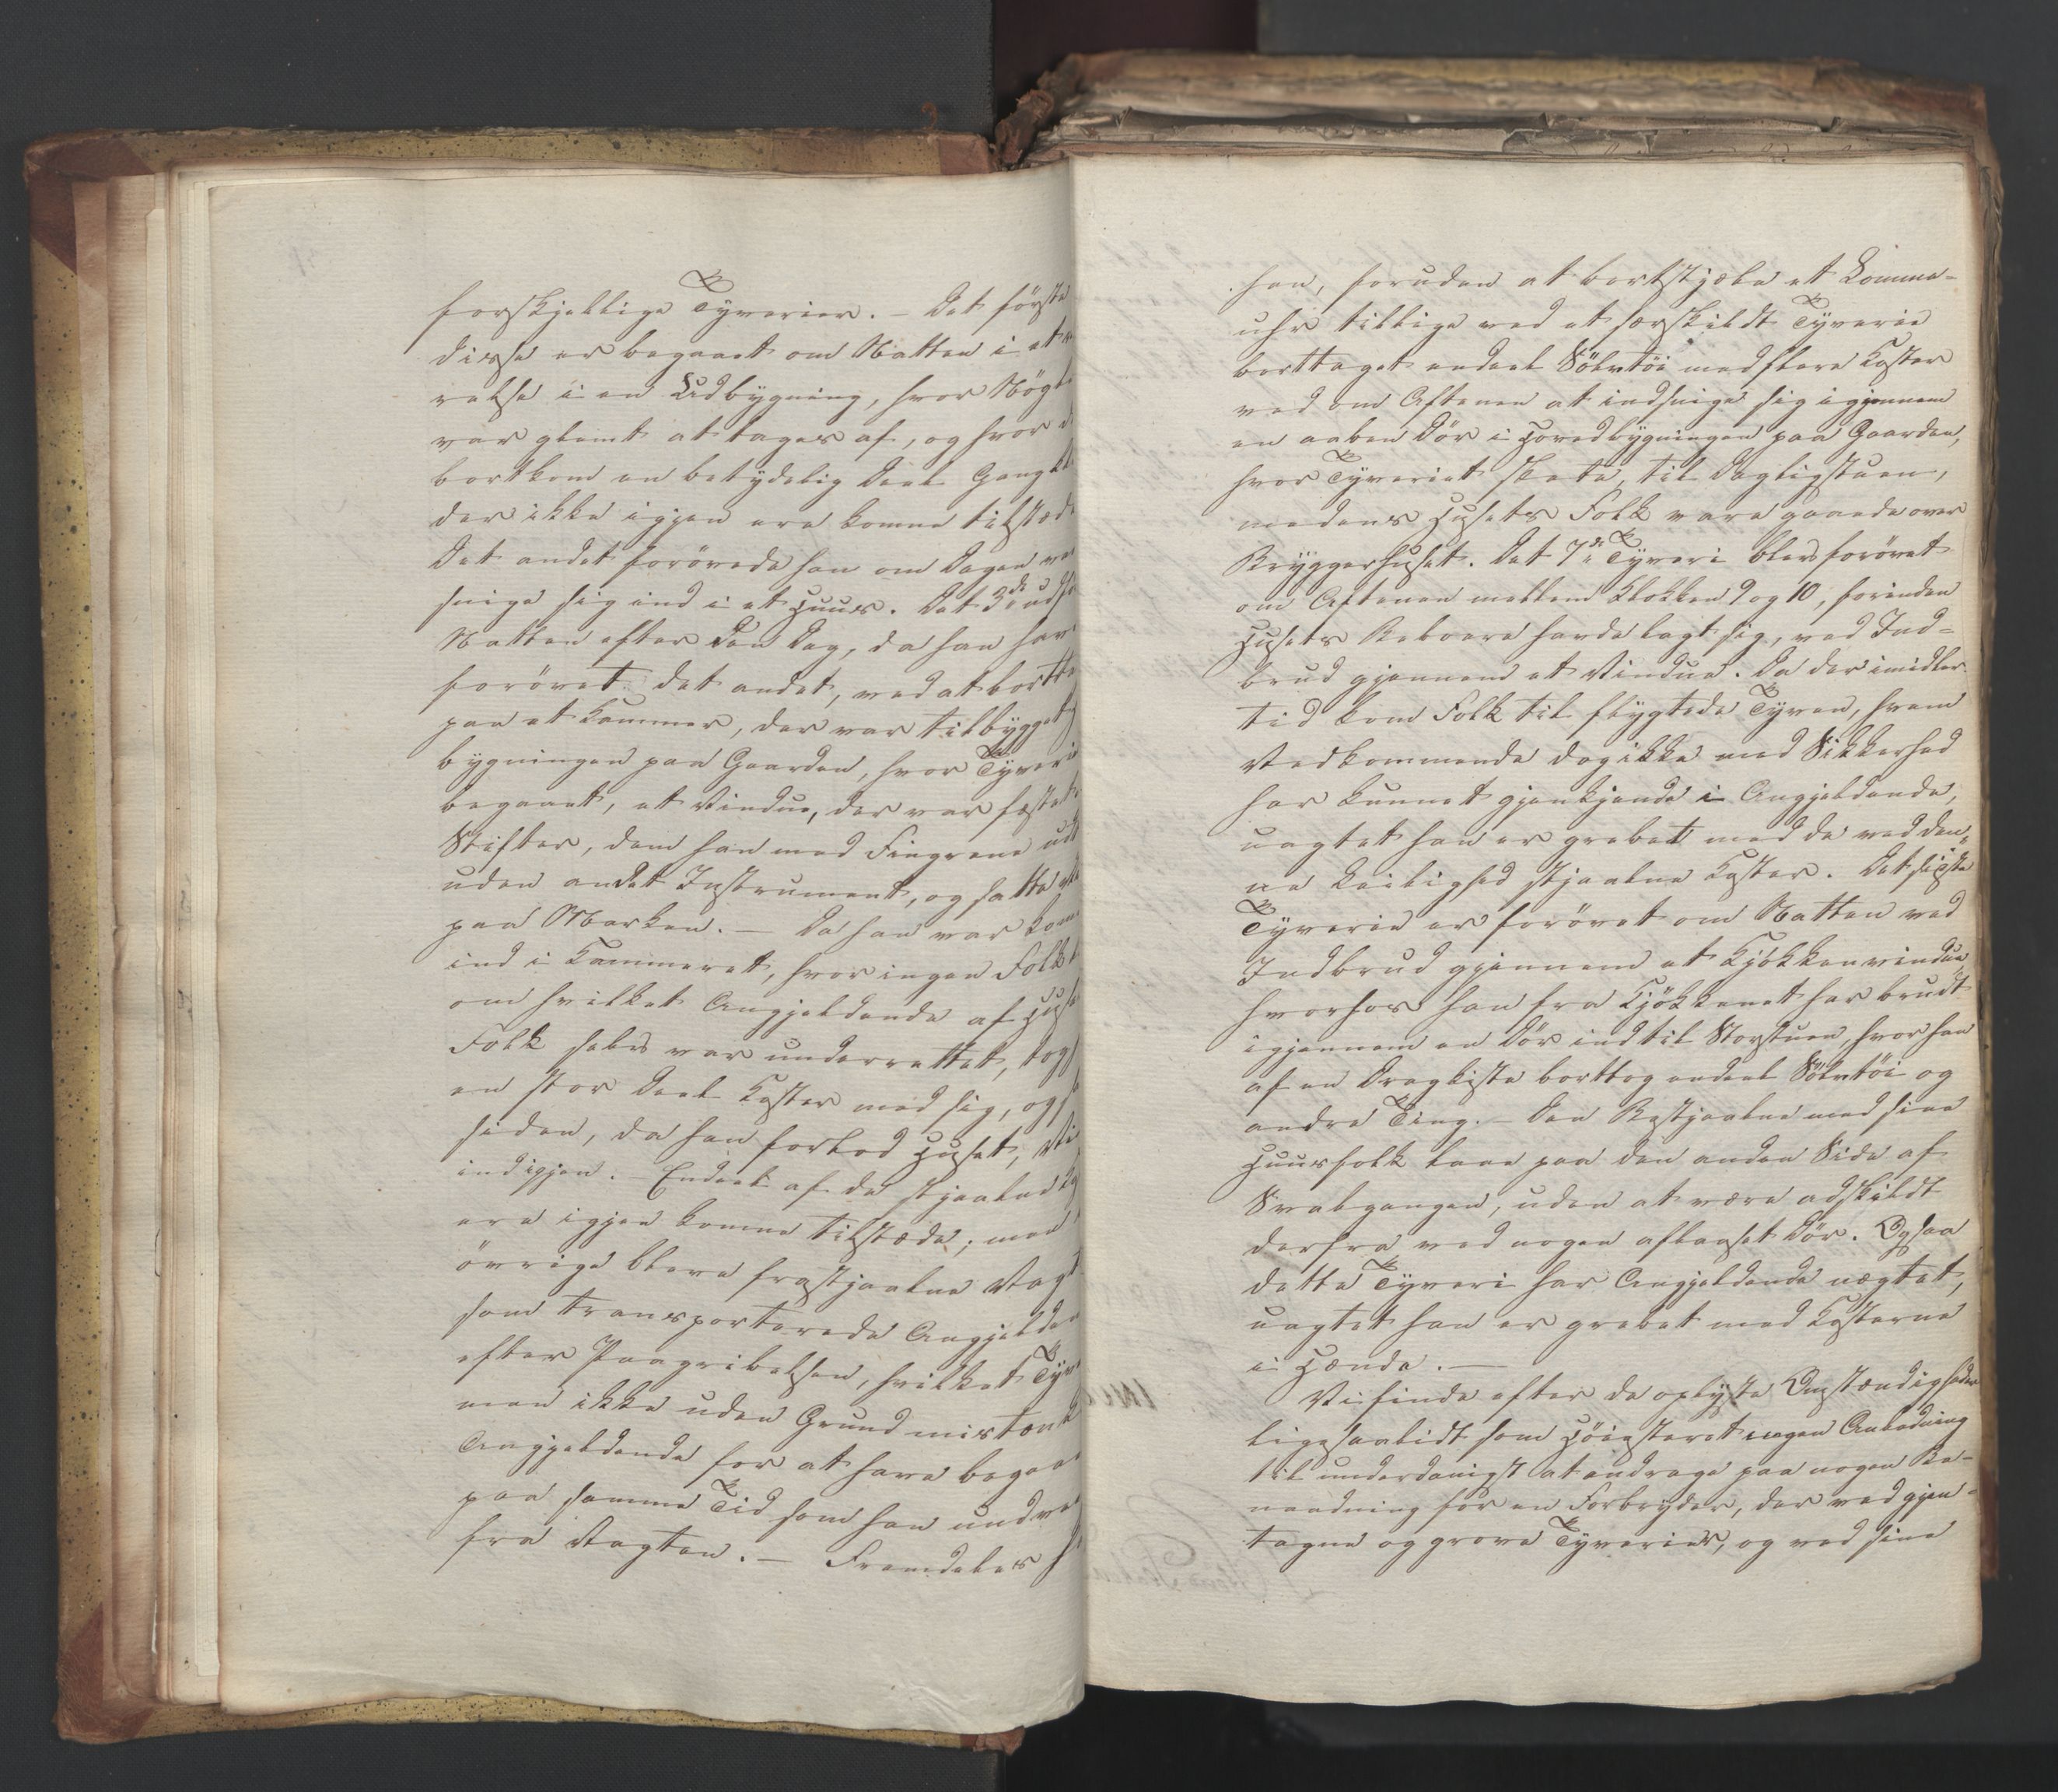 forskjellige Tyverier. – Det første
disse er begaaet om Natten i et
relse i en Udbygning, hvor Nøgle
var glemt at tages af, og hvor
bortkom en betydelig Deel Gangkl
der ikke igjen ere komne tilstæde
Det andet forøvede han om Dagen ve
snige sig ind i et Huus. Det 3de
Natten efter den Dag, da han hav
forøvet det andet, ved at bortta
paa et Kammer, der var tilbygget
bygningen paa Gaarden, hvor Tyveri
begaaet, et Vindue, der var fæstet
Stifter, dem han med Fingrene ud
uden andet Instrument, og satte
paa Marken. – Da han var kom
ind i Kammeret, hvor ingen Folk
om hvilket Angjeldende af Huse
Folk selv var underrettet, tog
en stor Deel Koster med sig, og
siden, da han forlod Huset, Vi
ind igjen. – Endeel af de stjaalne Ko
ere igjen komne tilstæde; men
øvrige bleve frastjaalne Vagt
som transporterede Angjelden
efter Paagribelsen, hvilket Tyv
man ikke uden Grund mistænk
Angjeldende for at have begaae
paa samme Tid som han undve
fra Vagten. – Fremdeles h
han, foruden at bortstjæle et Lomme-
uhr tillige ved et særskildt Tyverie
borttaget endeel Sölvtöi med flere Koster
ved om Aftenen at indsnige sig igjennem
en aaben Dör i Hovedbygningen paa Gaarden,
hvor Tyveriet skete, til Dagligstuen,
medens Husets Folk vare gaaede over
Bryggerhuset. Det 7de Tyveri blev forövet
om Aftenen mellem Klokken 9 og 10, forinden
Husets Beboere havde lagt sig, ved Ind-
brud gjennem et Vindue. Da der imidler-
tid kom Folk til flygtede Tyven, hvem
Vedkommende dog ikke med Sikkerhed
har kunnet gjenkjende i Angjeldende,
uagtet han er grebet med de ved den-
ne Leilighed stjaalne Koster. Det sidste
Tyverie er forövet om Natten ved
Indbrud gjennem et Kjökkenvindue
hvorhos han fra Kjökkenet har brudt
igjennem en Dör ind til Storstuen, hvor han
af en Dragkiste borttog endeel Sölvtöi og
andre Ting. – Den Bestjaalne med sine
Huusfolk laae paa den anden Side af
Svalgangen, uden at være adskildt
derfra ved nogen aflaaset Dör. Ogsaa
dette Tyveri har Angjeldende nægtet,
uagtet han er grebet med Kosterne
i Hænde. –
Vi finde efter de oplyste Omstændigheder
ligesaalidt som Höiesteret nogen Anledning
til underdanigst at andrage paa nogen Be-
naadning for en Forbryder, der ved gjen-
tagne og grove Tyverier, og ved sine